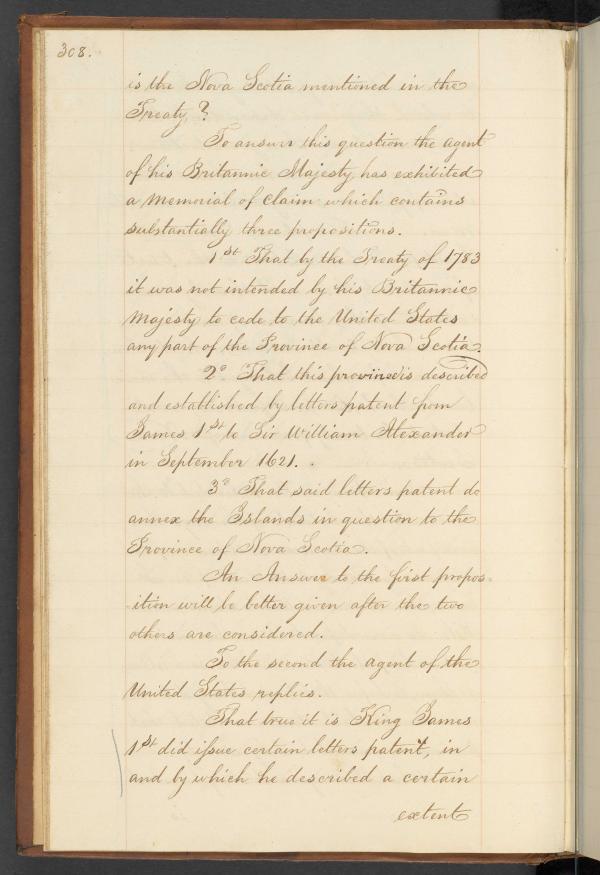 308.
is the Nova Scotia mentioned in the
Treaty?
To answer this question the agent
of his Britannic Majesty, has exhibited
a Memorial of claim which contains
substantially three propositions.
1st That by the Treaty of 1783
it was not intended by his Britannic
Majesty to cede to the United States
any part of the Province of Nova Scotia.
2o That this province is described
and established by letters patent from
James 1st to Sir William Alexander
in September 1621.
3o That said letters patent do
annex the Islands in question to the
Province of Nova Scotia.
An Answer to the first propos-
-ition will be better given after the two
others are considered.
To the second the agent of the
United States replies.
That true it is King James
1st did issue certain letters patent, in
and by which he described a certain
extent